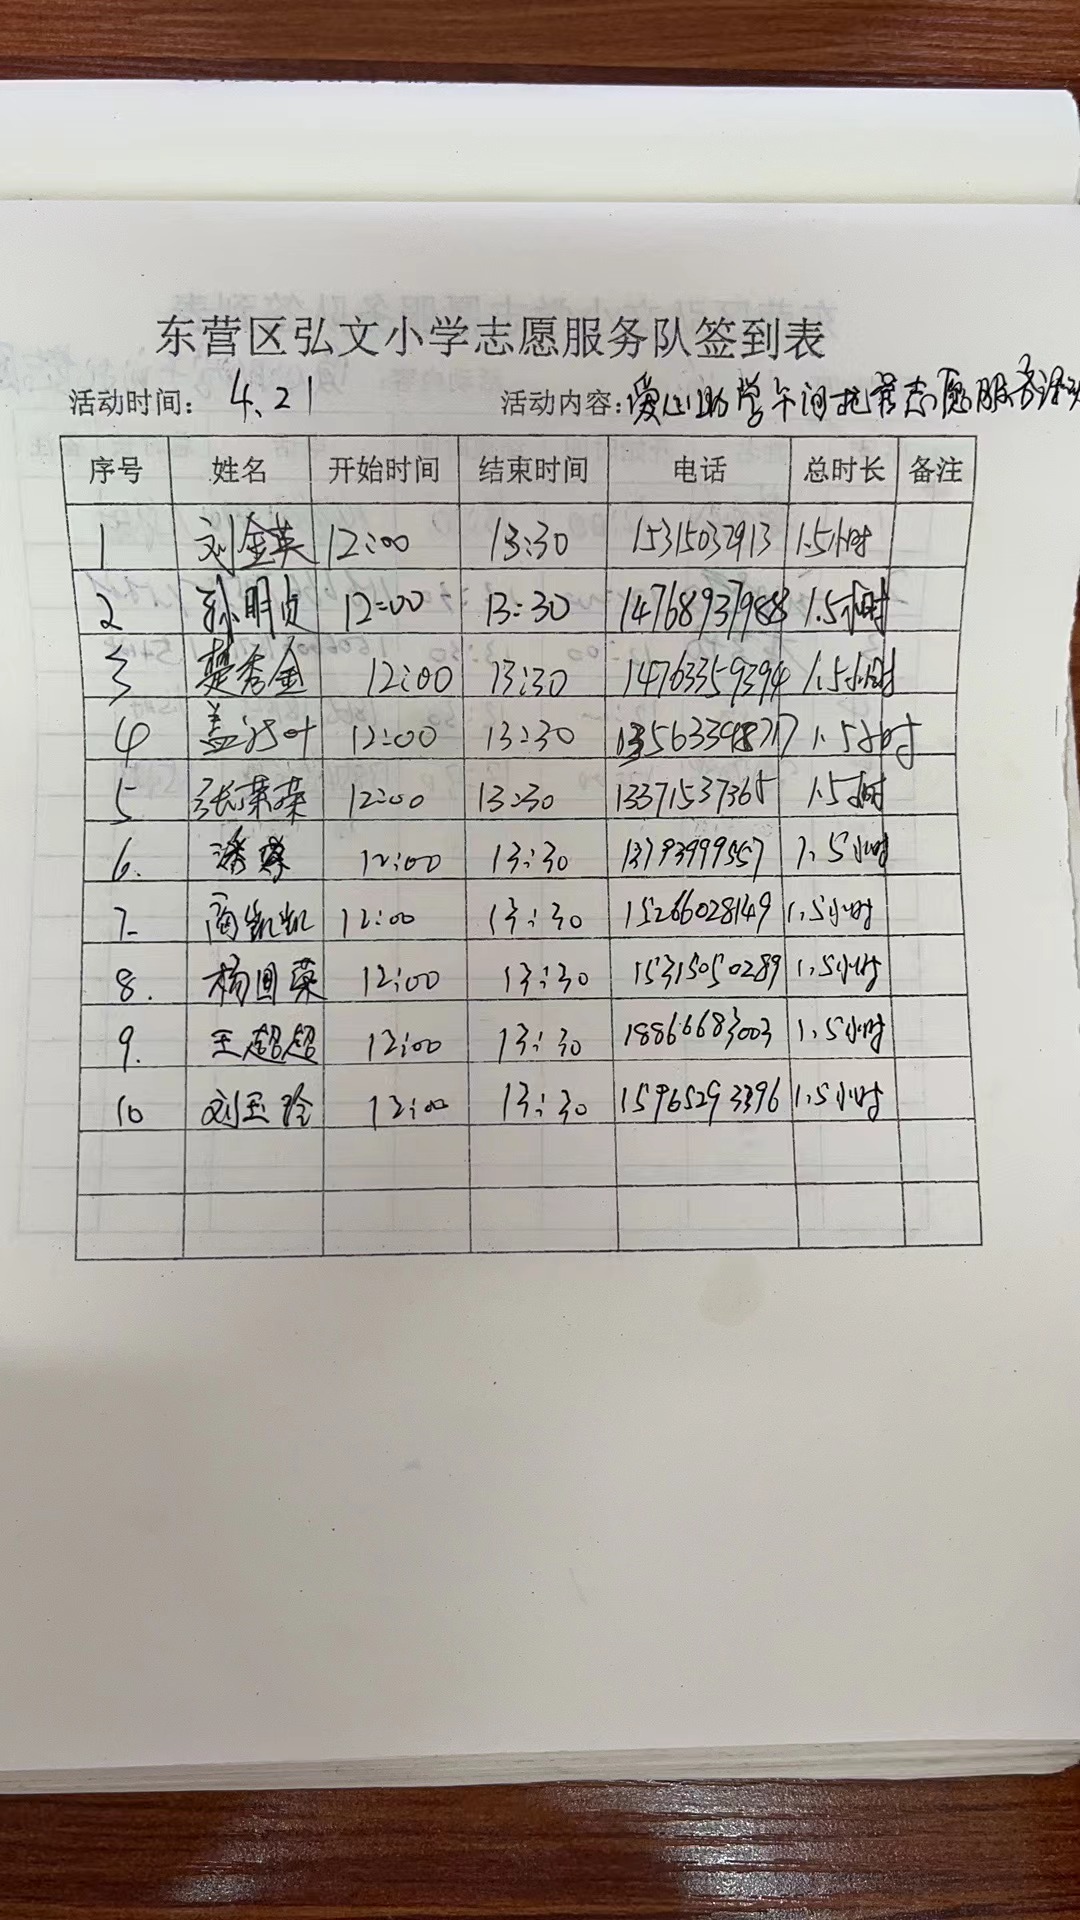 东营区弘文小学志愿服务队签到表
活动时间: 4.21 活动内容:爱心助学午间托管志愿服务活动
序号 姓名 开始时间 结束时间 电话 总时长 备注
1 刘金英 12:00 13:30 15315032913 1.5小时
2 孙明贞 12:00 13:30 14768937988 1.5小时
3 樊秀金 12:00 13:30 14763359394 1.5小时
4 盖 叶 12:00 13:30 1.5小时
5 张荣荣 12:00 13:30 13371537365 1.5小时
6. 潘 12:00 13:30 13793999557 1.5小时
7. 商凯凯 12:00 13:30 15266028149 1.5小时
8. 杨国荣 12:00 13:30 15315050289 1.5小时
9. 王超超 12:00 13:30 18866683003 1.5小时
10 刘玉玲 12:00 13:30 15965293396 1.5小时